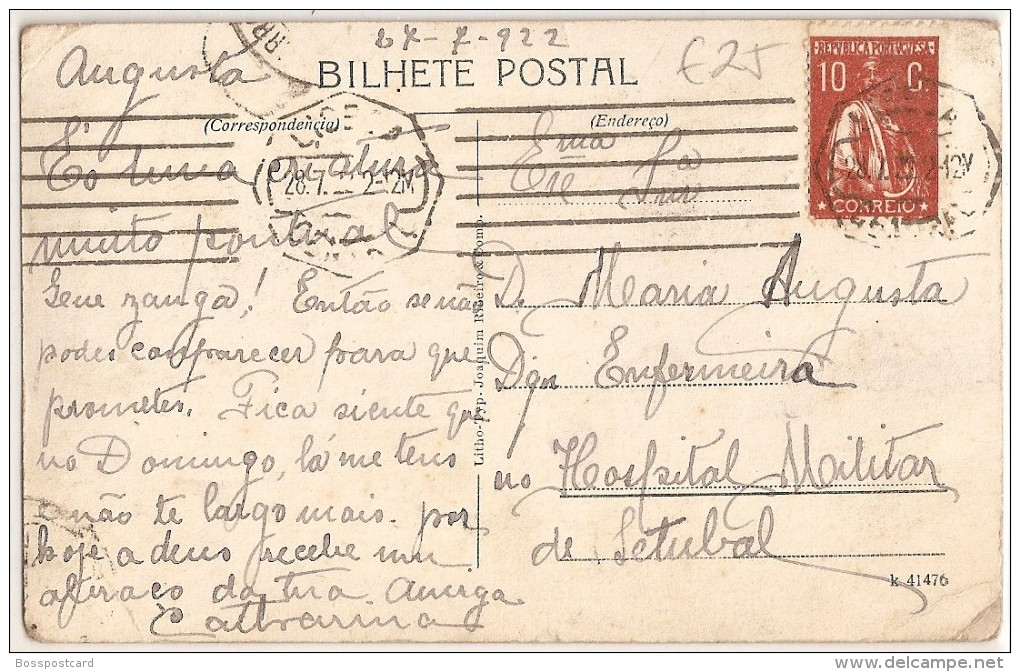 27-7-922
€25
BILHETE POSTAL
(Correspondencia)
(Endereço)
REPUBLICA PORTUGUESA
10 C.
CORREIO
28.7.
2-12M
28.7.
2-12M
Augusta
És uma creatura
muito pontual
Tene zanga! Então se não
podes comparecer para que
prometes. Fica siente que
no Domingo, lá me tens
e não te largo mais. por
hoje adeus recebe um
abraço da tua Amiga
Catharina
Litho-Typ. Joaquim Ribeiro & Comp.
Ema
Sra
D. Maria Augusta
Dgn Enfermeira
no Hospital Militar
de Setubal
k. 41476
Bosspostcard
www.delcampe.net